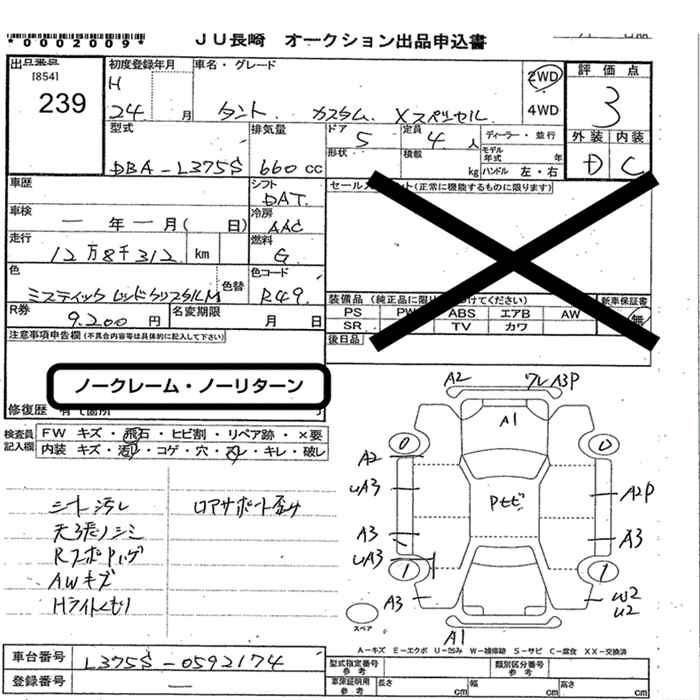 *0002009*
JU長崎 オークション出品申込書
出品番号
[854]
239
初度登録年月
H
24 月
車名・グレード
タント カスタム Xスペシャル
2WD
4WD
評価点
3
外装 内装
D C
型式
DBA-L375S
排気量
660 cc
ドア
5
定員
4 人
ディーラー・並行
形状
積載
kg
モデル年式 年
ハンドル 左・右
車歴
シフト
DAT
車検
一 年 一 月( 日)
冷房
AAC
走行
12万8千312 km
燃料
G
色
ミスティックレッドクリスタルM
色替
色コード
R49
R券
9.200 円
名変期限
月 日
セールスポイント(正常に機能するものに限ります)
装備品
新車保証書
PS PW ABS エアB AW 無
SR TV カワ
後日品
注意事項申告欄(不具合内容等は具体的に記入して下さい)
ノークレーム・ノーリターン
修復歴
検査員記入欄
FW キズ・飛石・ヒビ割・リペア跡・×要
内装 キズ・汚れ・コゲ・穴・スレ・キレ・破レ
シート汚レ
天張リシミ
AWキズ
Hライトくもり
ロアサポート歪ミ
A2 ワレA3P
A1
0 0
A2
UA3
Pセビ
A2P
A3 A3
UA3
1 1
A3
W2
U2
A1
スペア
A-キズ E-エクボ U-凹み W-補修跡 S-サビ C-腐食 XX-交換済
車台番号
L375S-0592174
登録番号
一
型式指定番号 参考
類別区分番号 参考
車庫証明用 参考
長さ cm 幅 cm 高さ cm